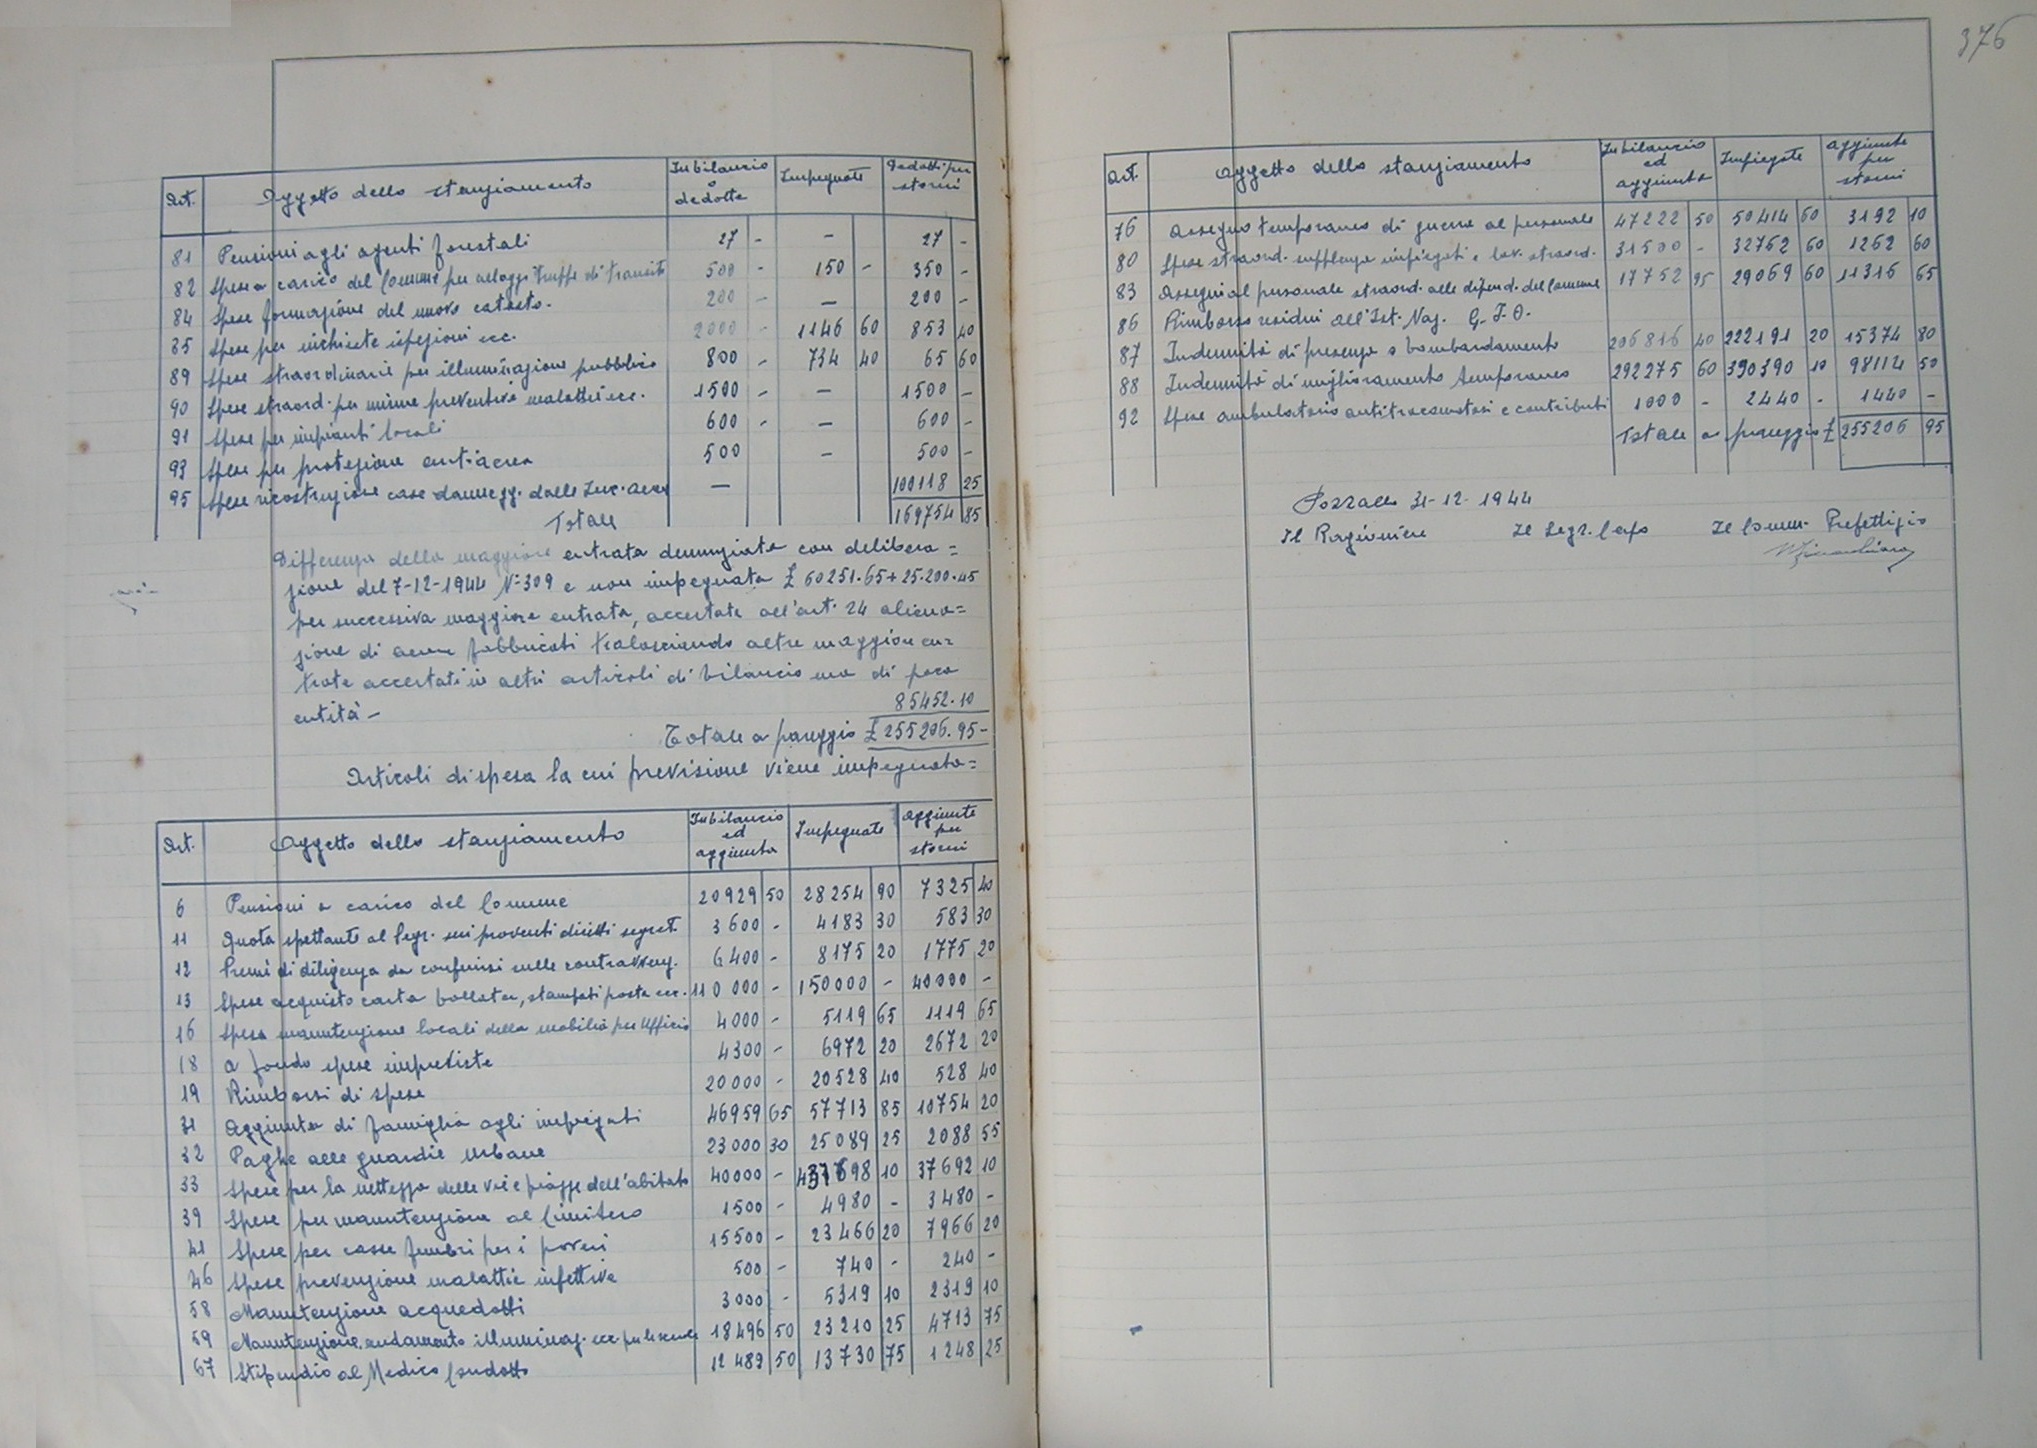 376
Art. Oggetto dello stanziamento In bilancio o dedotte Impegnate Dedotti per storni
81 Pensioni agli agenti forestali 27 - - 27 -
82 Spese a carico del Comune per alloggi truppe di transito 500 - 150 - 350 -
84 Spese formazione del nuovo catasto. 200 - - 200 -
85 Spese per inchieste ispezioni ecc. 2000 - 1146 60 853 40
89 Spese straordinarie per illuminazione pubblica 800 - 734 40 65 60
90 Spese straord. per misure preventive malattie ecc. 1500 - - 1500 -
91 Spese per impianti locali 600 - - 600 -
93 Spese per protezione antiaerea 500 - 500 -
95 Spese ricostruzione case dannegg. dalle Inc. aeree - 100118 25
Totale 169754 85
Differenza della maggiore entrata denunziata con delibera=
zione del 7-12-1944 N° 309 e non impegnata £ 60251.65 + 25.200.45
per successiva maggiore entrata, accertata all'art. 24 aliena=
zione di fabbricati tralasciando altre maggiori en=
trate accertati in altri articoli di bilancio ma di poca
entità - 85452.10
Totale a pareggio £ 255206.95-
Articoli di spesa la cui previsione viene impegnata=
Art. Oggetto dello stanziamento In bilancio ed aggiunta Impegnate Aggiunte per storni
6 Pensioni a carico del Comune 20929 50 28254 90 7325 40
11 Quota spettante al Segr. sui proventi diritti segret. 3600 - 4183 30 583 30
12 Premi di diligenza da conferirsi sulle contravvenz. 6400 - 8175 20 1775 20
13 Spese acquisto carta bollata, stampati posta ecc. 110 000 - 150000 - 40000 -
16 Spesa manutenzione locali della mobilia per Ufficio 4000 - 5119 65 1119 65
18 A fondo spese impreviste 4300 - 6972 20 2672 20
19 Rimborsi di spese 20000 - 20528 40 528 40
31 Aggiunta di famiglia agli impiegati 46959 65 57713 85 10754 20
32 Paghe alle guardie urbane 23000 30 25089 25 2088 55
33 Spese per la nettezza delle vie e piazze dell'abitato 40000 - 98 10 37692 10
39 Spese per manutenzione al Cimitero 1500 - 4980 - 3480 -
41 Spese per casse funebri per i poveri 15500 - 23466 20 7966 20
46 Spese prevenzione malattie infettive 500 - 740 - 240 -
58 Manutenzione acquedotti 3000 - 5319 10 2319 10
59 Manutenzione, andamento illuminaz. ecc. per le scuole 18496 50 23210 25 4713 75
67 Stipendio al Medico Condotto 12483 50 13730 75 1248 25
Art. Oggetto dello stanziamento In bilancio ed aggiunta Impiegate Aggiunte per storni
76 Assegno temporaneo di guerra al personale 47222 50 50414 60 3192 10
80 Spese straord. supplenza impiegati e lav. straord. 31500 - 32762 60 1262 60
83 Assegni al personale straord. alle dipend. del Comune 17752 95 29069 60 11316 65
86 Rimborso residui all'Ist. Naz. G. F. O.
87 Indennità di presenza o bombardamento 206816 40 222191 20 15374 80
88 Indennità di miglioramento temporaneo 292275 60 390390 10 98114 50
92 Spese ambulatorio antitracomatosi e contributi 1000 - 2440 - 1440 -
Totale a pareggio £ 255206 95
Pozzallo 31-12-1944
Il Ragioniere Il Segr. Capo Il Comm. Prefettizio